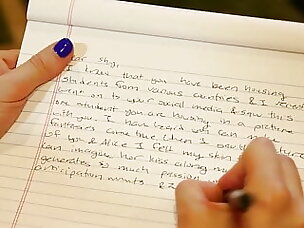 Dear Shy,
I know that you have been housing
students from various countries & I recently
went on to your social media & saw this
one student you are housing in a picture
with you. I have heard you can
fantasies come true. When I
of you & Alice I felt my skin
can imagine her kiss along
generates so much passion
anticipation mounts &